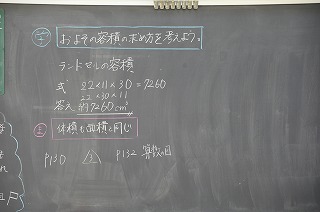 ㋕ およその容積の求め方を考えよう。
ランドセルの容積
式 22×11×30=7260
22×30×11
答え 約7260cm³
㋮ 体積も面積と同じ
P130 △2 P132 算数の目